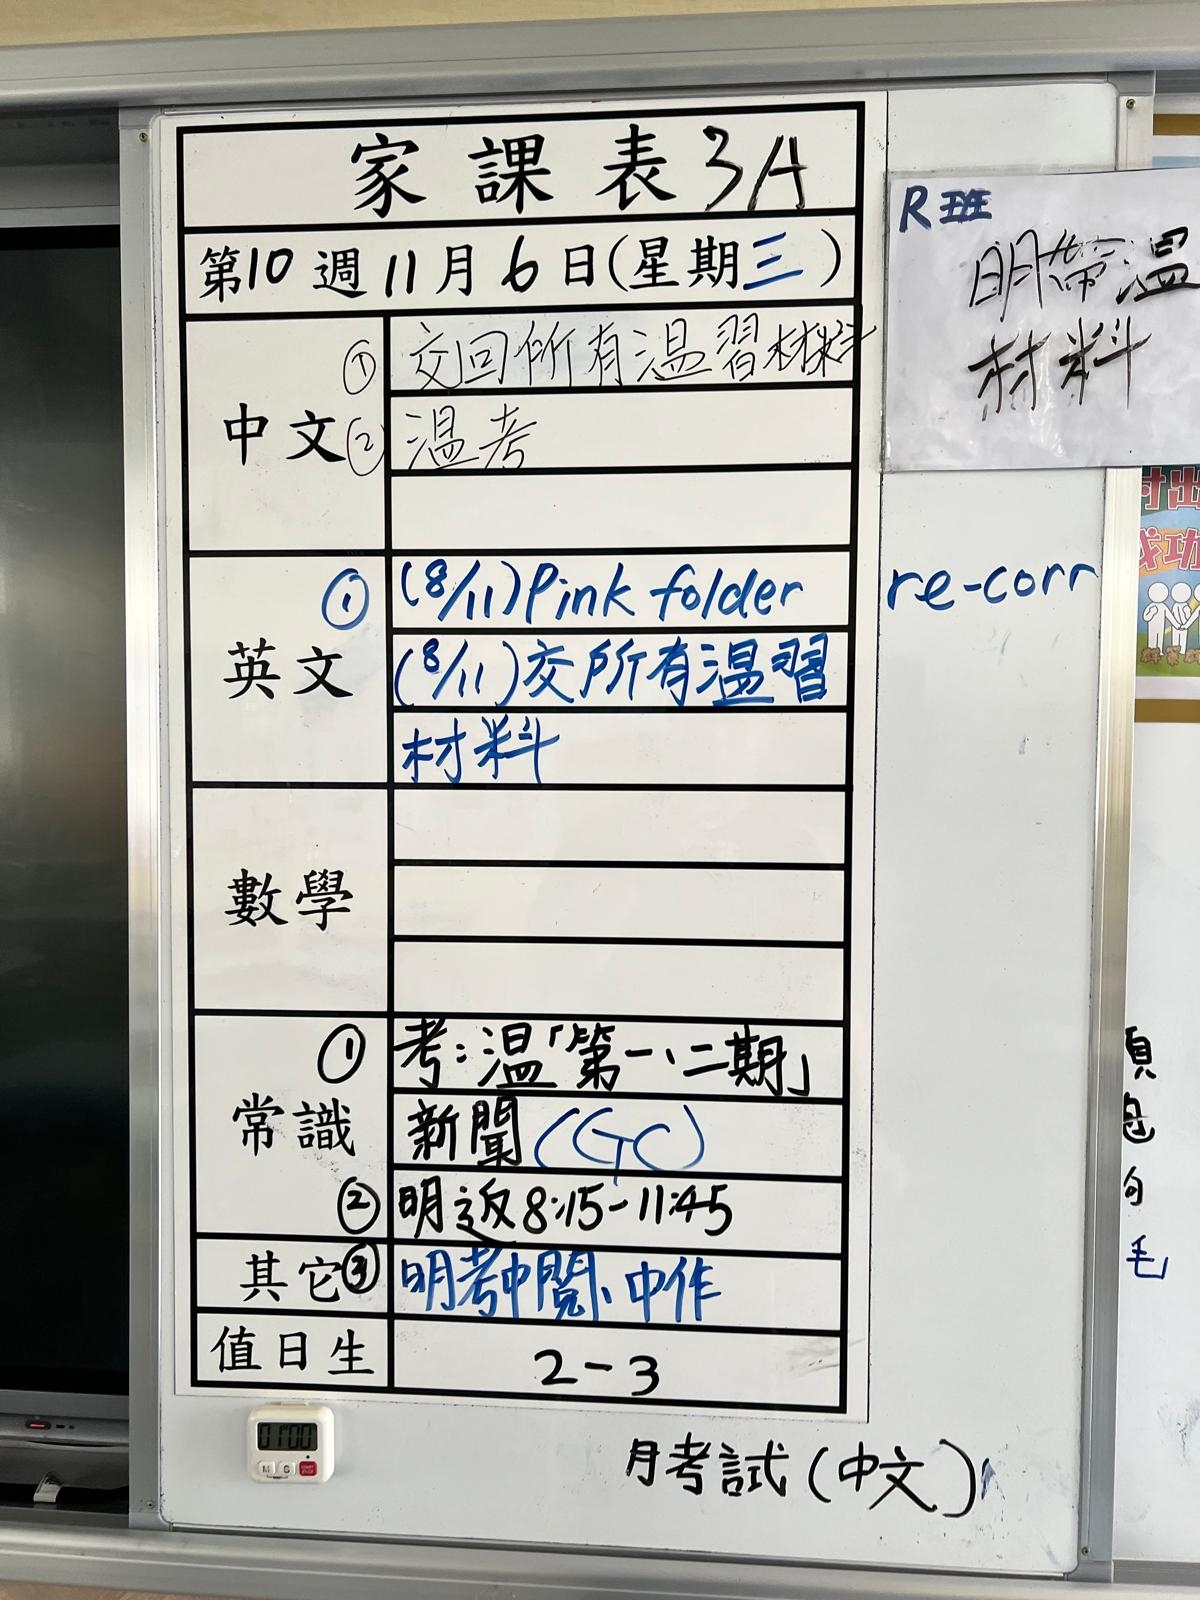 家課表 3A
第10週11月6日(星期三)
中文
① 交回所有溫習材料
② 溫考
英文
① (8/11) Pink folder re-corr
(8/11)交所有溫習
材料
數學
常識
① 考：溫「第一、二期」
新聞 (GC)
② 明返8:15-11:45
其它
③ 明考中閱、中作
值日生
2-3
月考試(中文)
R班
明帶溫
材料
01:00
M S
討出
成功